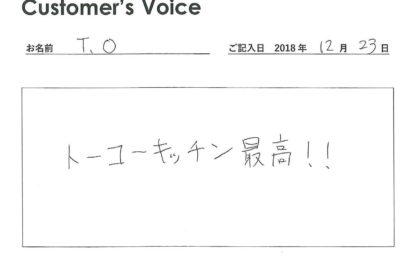 Customer's Voice
お名前 T.O ご記入日 2018年 12月 23日
トーコーキッチン最高!!